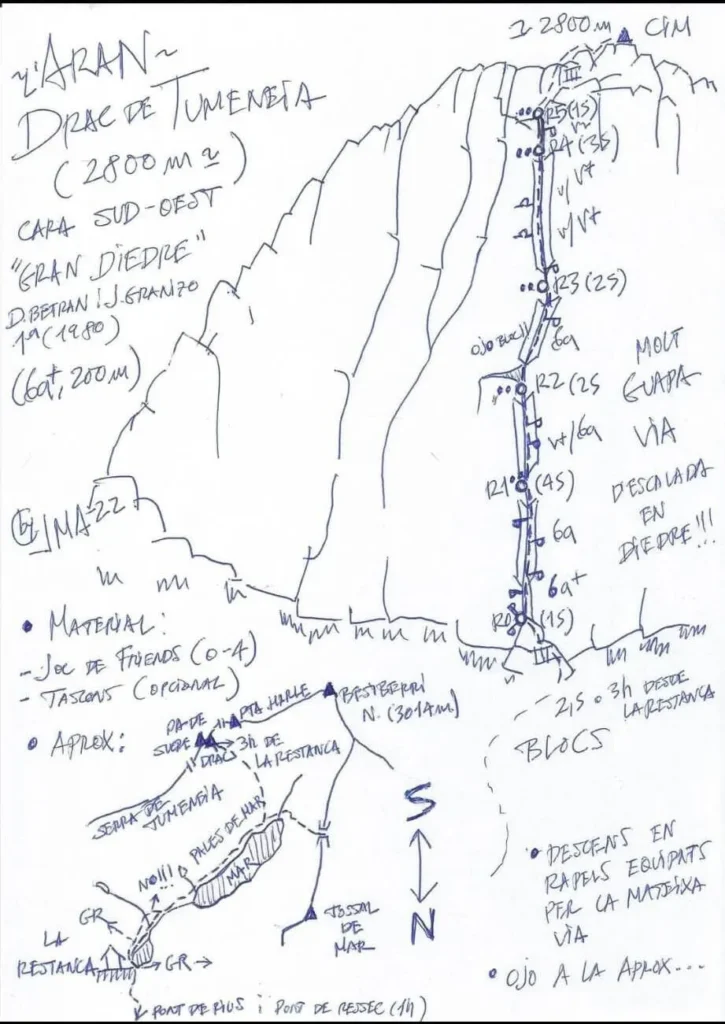 ~L'ARAN~
DRAC DE TUMENEIA
(2800 m ~)
CARA SUD-OEST
"GRAN DIEDRE"
D. BETRAN i J. GRANIZO
1ª (1980)
(6a+, 200 m)
~2800 m
CIM
III
R5 (1S)
V-
R4 (3S)
V/V+
V/V+
R3 (2S)
OJO BLOC!!
6a
R2 (2S
V+/6a
R1 (4S)
6a
6a+
R0 (1S)
III
MOLT
GUAPA
VIA
D'ESCALADA
EN
DIEDRE!!!
JMA-22
• MATERIAL:
- JOC DE FRIENDS (0-4)
- TASCONS (OPCIONAL)
• APROX:
PA DE
SUCRE
PTA HARLE
BESIBERRI
N. (3014m)
DRAC
3h DE
LA RESTANCA
SERRA DE
TUMENEIA
PALES DE MAR
MAR
NO!!!
GR
LA
RESTANCA
GR
TOSSAL
DE
MAR
S
N
PONT DE RIUS i PONT DE RESSEC (1h)
2,5 o 3h DESDE
LA RESTANCA
BLOCS
• DESCENS EN
RAPELS EQUIPATS
PER LA MATEIXA
VIA
• OJO A LA APROX...